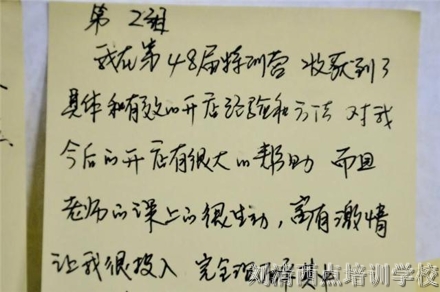 第2组
我在第48届特训营 收获到了
具体和有效的开店经验和方法 对我
今后的开店有很大的帮助 而且
老师的课上的很生动,富有激情
让我很投入 完全
刘清西点培训学校